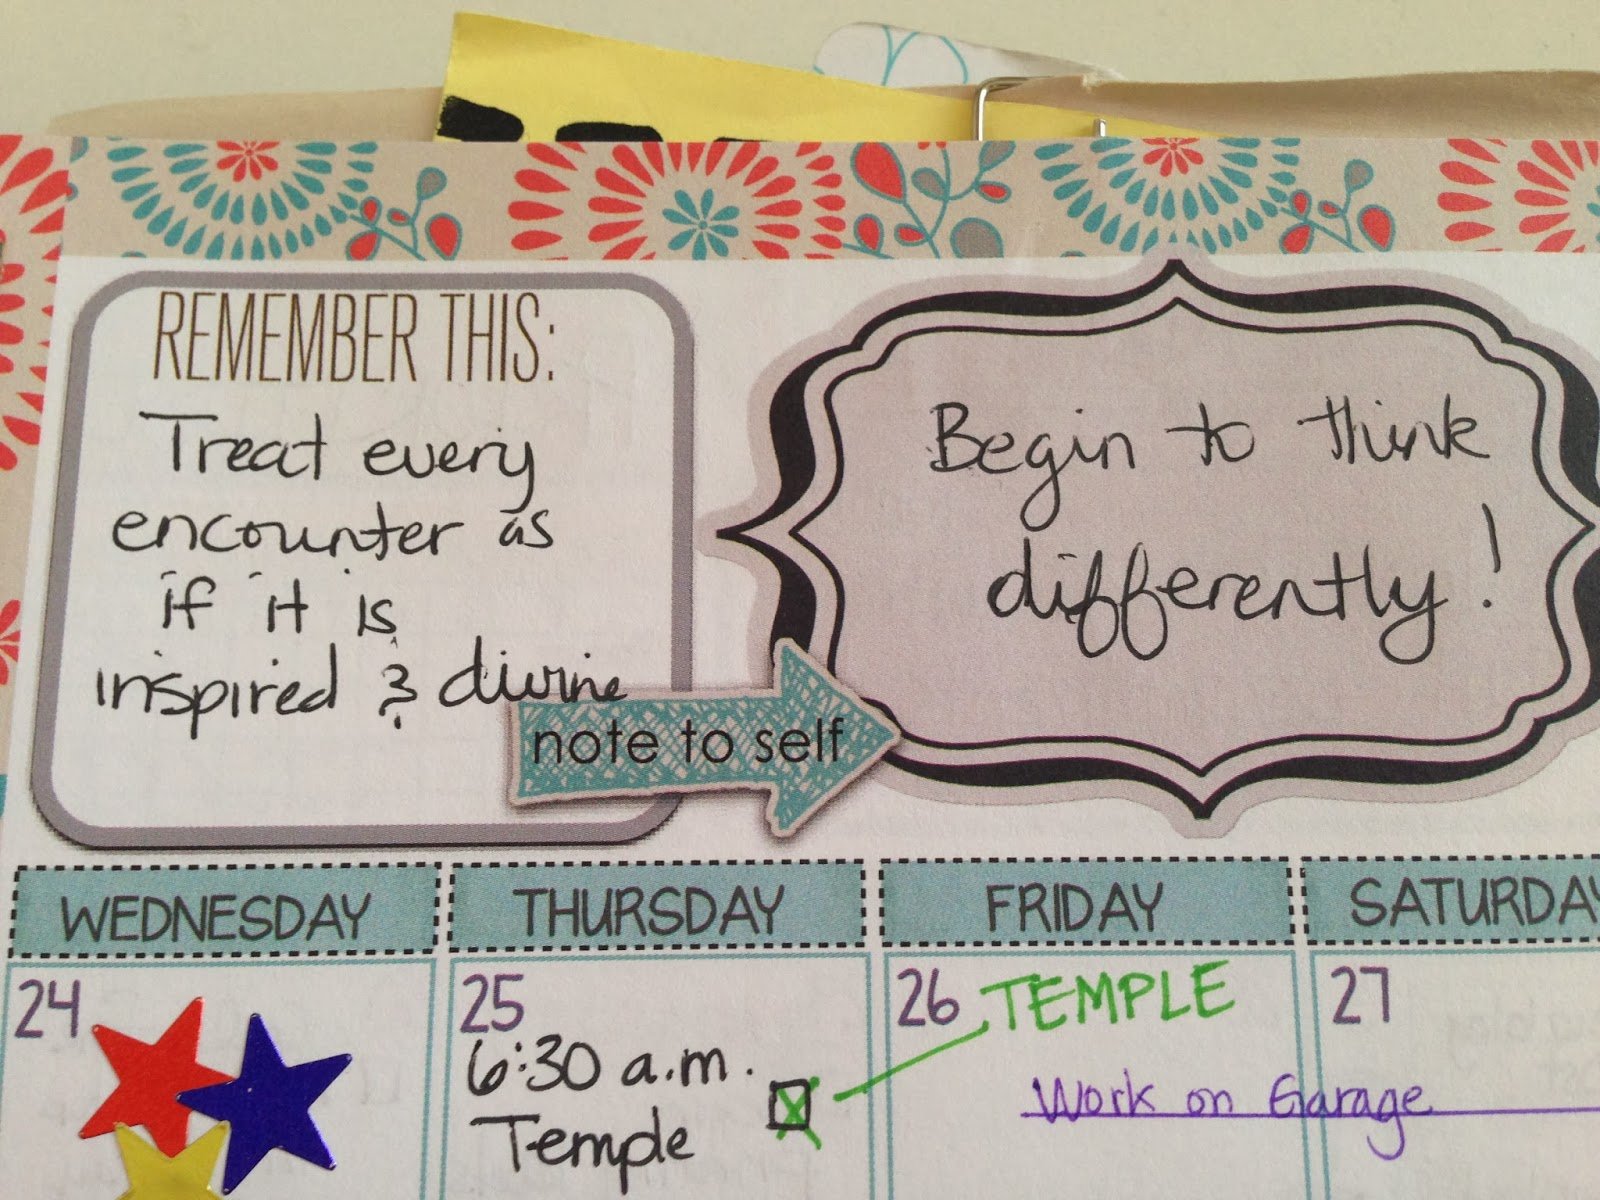 REMEMBER THIS:
Treat every
encounter as
if it is
inspired & divine
note to self
Begin to think
differently!
WEDNESDAY
THURSDAY
FRIDAY
SATURDAY
24
25
6:30 a.m.
Temple
26
TEMPLE
Work on Garage
27